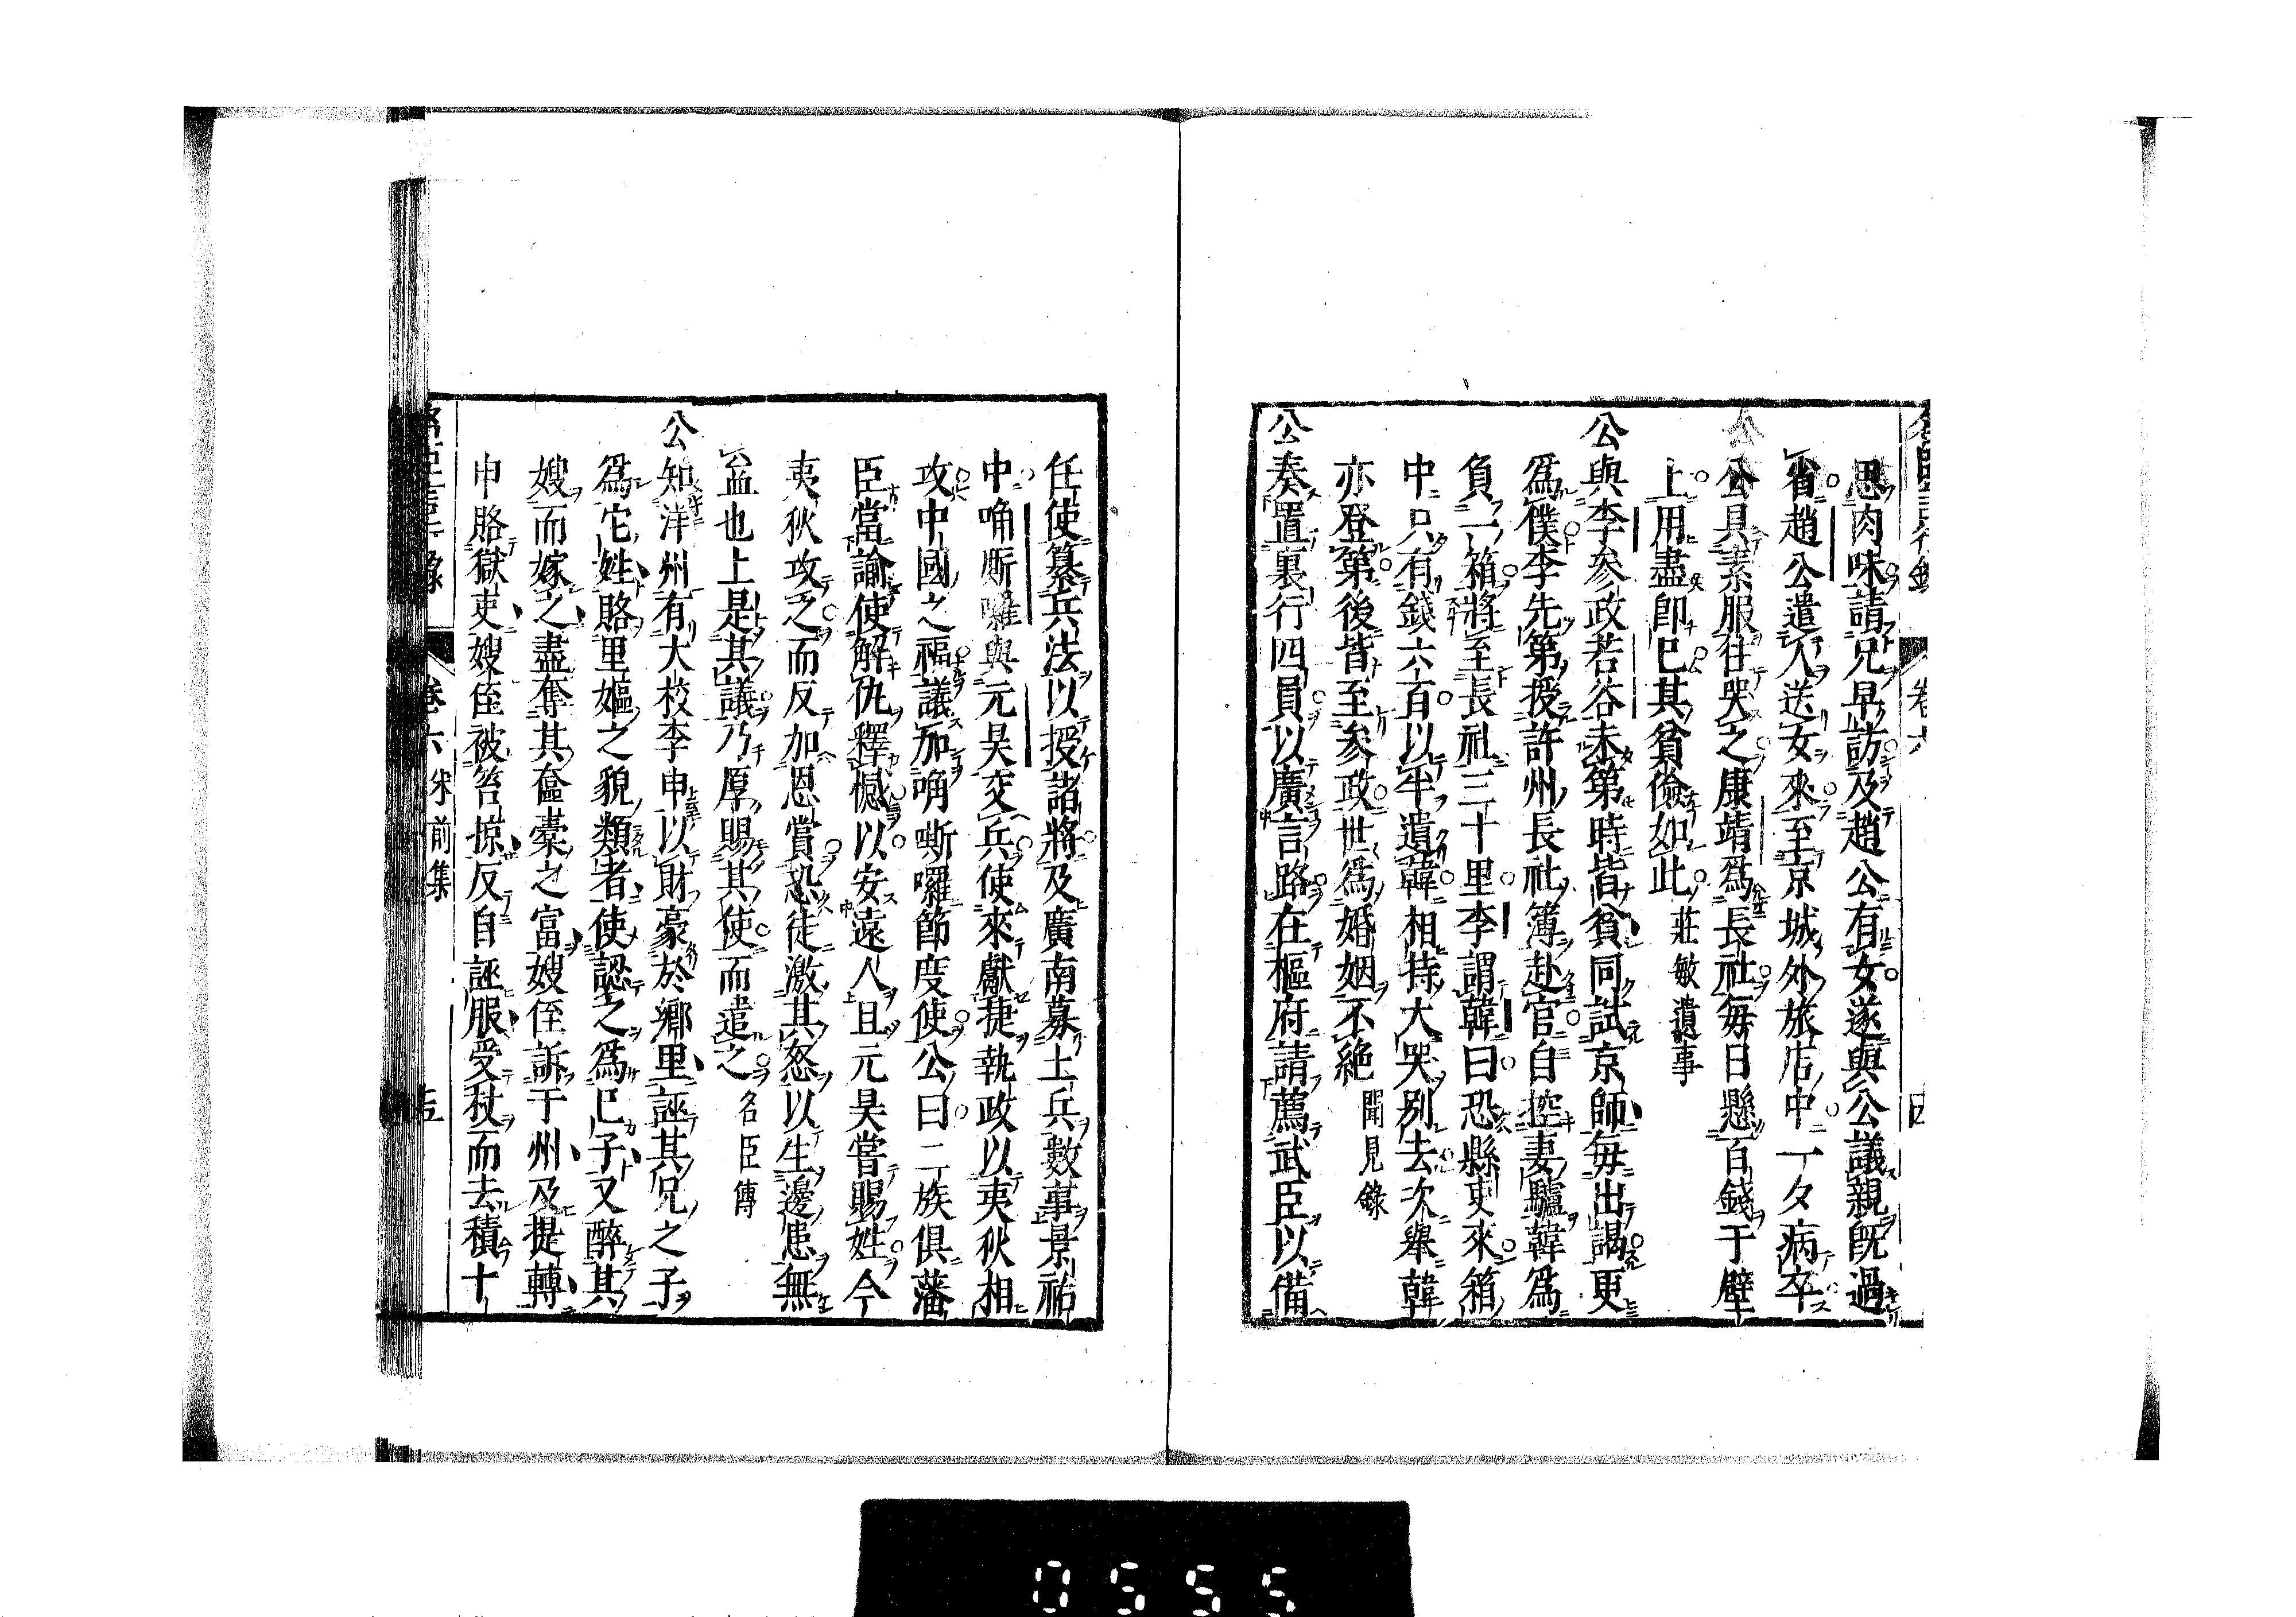 思肉味請兄早訪及趙公有女遂與公議親既過
省趙公遣人送女來至京城外旅店中一夕病卒
公具素服往哭之康靖爲長社每日懸百錢于壁
上用盡即已其貧儉如此 莊敏遺事
公與李參政若谷未第時皆貧同試京師每出謁更
爲僕李先第授許州長社簿赴官自控妻驢韓爲
負一箱將至長社三十里李謂韓曰恐縣吏來箱
中只有錢六百以半遺韓相持大哭別去次舉韓
亦登第後皆至參政世爲婚姻不絶 聞見錄
公奏置裏行四員以廣言路在樞府請薦武臣以備
任使纂兵法以授諸將及廣南募土兵數事景祐
中唃厮囉與元昊交兵使來獻捷執政以夷狄相
攻中國之福議加唃嘶囉節度使公曰二族俱藩
臣當諭使解仇釋憾以安遠人且元昊嘗賜姓今
夷狄攻之而反加恩賞恐徒激其怒以生邊患無
益也上是其議乃厚賜其使而遣之 名臣傳
公知洋州有大校李申以財豪於鄉里誣其兄之子
爲它姓賂里嫗之貌類者使認之爲己子又醉其
嫂而嫁之盡奪其奩橐之富嫂侄訴于州及提轉
申賂獄吏嫂侄被笞掠反自誣服受杖而去積十
卷六 宋前集